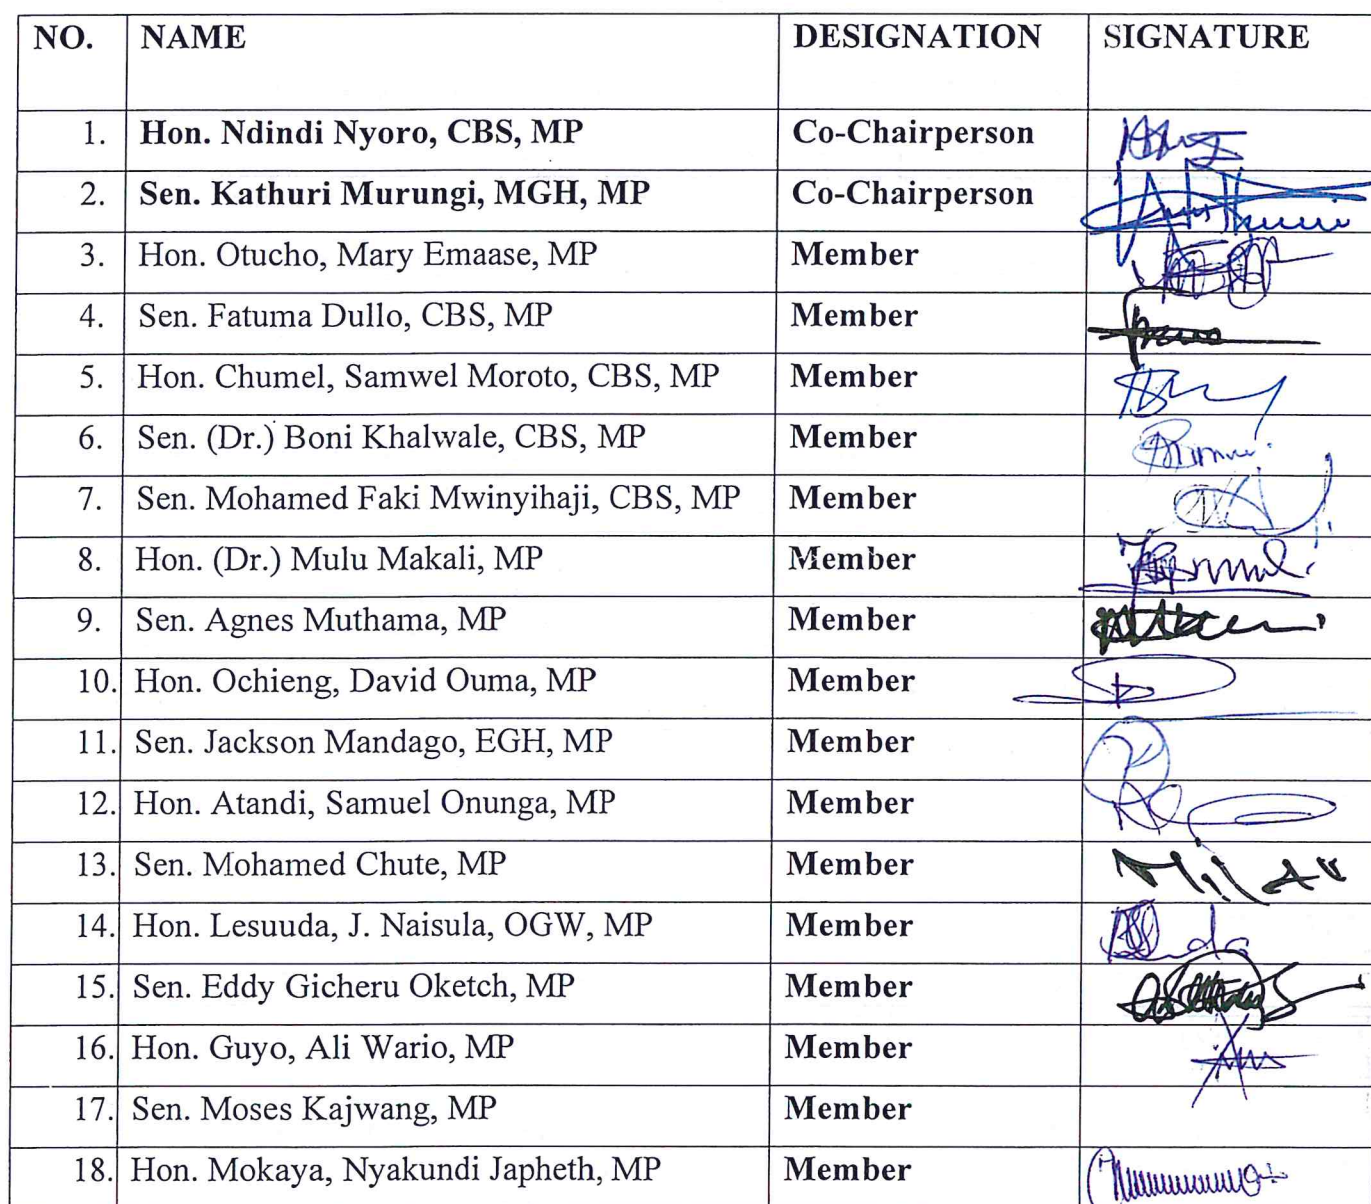 NO. NAME DESIGNATION SIGNATURE
1. Hon. Ndindi Nyoro, CBS, MP Co-Chairperson
2. Sen. Kathuri Murungi, MGH, MP Co-Chairperson
3. Hon. Otucho, Mary Emaase, MP Member
4. Sen. Fatuma Dullo, CBS, MP Member
5. Hon. Chumel, Samwel Moroto, CBS, MP Member
6. Sen. (Dr.) Boni Khalwale, CBS, MP Member
7. Sen. Mohamed Faki Mwinyihaji, CBS, MP Member
8. Hon. (Dr.) Mulu Makali, MP Member
9. Sen. Agnes Muthama, MP Member
10. Hon. Ochieng, David Ouma, MP Member
11. Sen. Jackson Mandago, EGH, MP Member
12. Hon. Atandi, Samuel Onunga, MP Member
13. Sen. Mohamed Chute, MP Member
14. Hon. Lesuuda, J. Naisula, OGW, MP Member
15. Sen. Eddy Gicheru Oketch, MP Member
16. Hon. Guyo, Ali Wario, MP Member
17. Sen. Moses Kajwang, MP Member
18. Hon. Mokaya, Nyakundi Japheth, MP Member